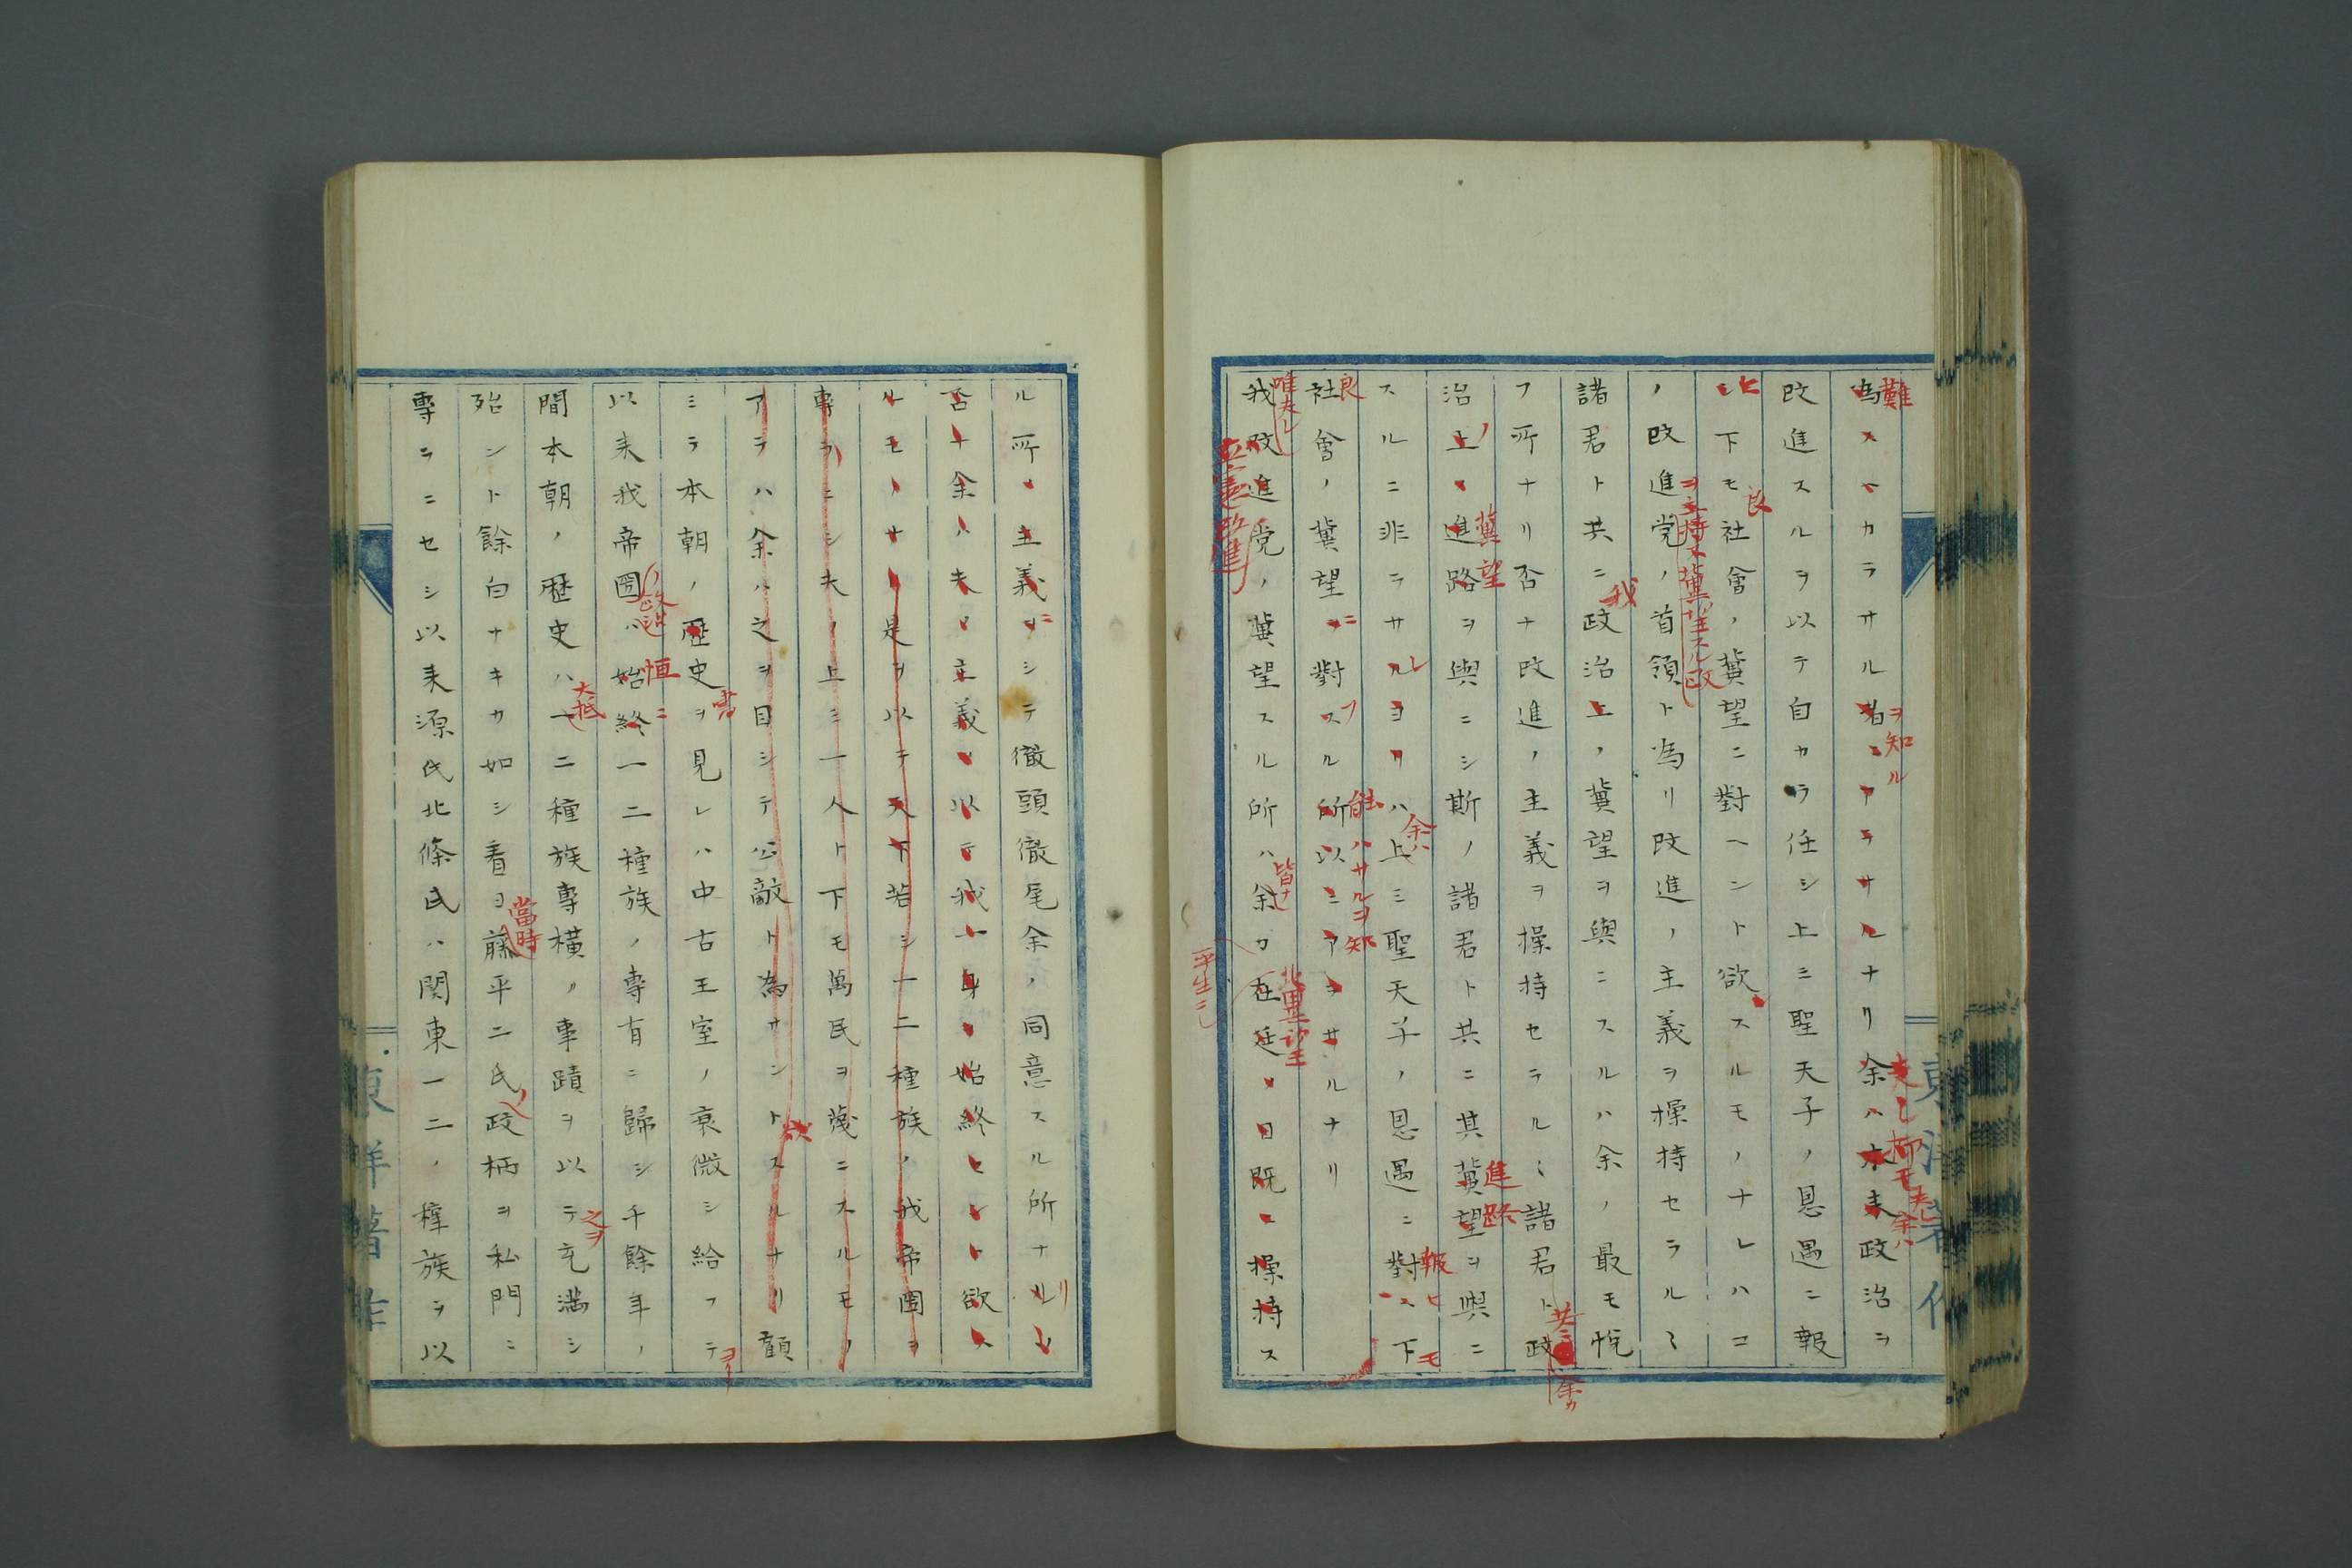 為スヘカラサル者ニアラサルナリ余ハ本来政治ヲ
改進スルヲ以テ自カラ任シ上ミ聖天子ノ恩遇ニ報
シ下モ社會ノ冀望ニ對ヘント欲スルモノナレハコ
ノ改進党ノ首領ト為リ改進ノ主義ヲ操持セラルヽ
諸君ト共ニ政治上ノ冀望ヲ與ニスルハ余ノ最モ悦
フ所ナリ否ナ改進ノ主義ヲ操持セラルヽ諸君ト政
治上ノ進路ヲ與ニシ斯ノ諸君ト共ニ其冀望ヲ與ニ
スルニ非ラサルヨリハ上ミ聖天子ノ恩遇ニ對ス下
社會ノ冀望ニ對スル所以ニアラサルナリ
我改進党ノ冀望スル所ハ余カ在廷ノ日既ニ操持ス
難
ヲ知ル
夫レ抑モ
余ハ
ヒ
良
ヲ主持シ冀望スル政
我
共ニ
余カ
冀望
進路
余ハ
報ヒ
モ
良
ニ
フ
能ハサルヲ知
唯夫レ
皆ナ
立憲改進
平生ニ
ル所ノ主義ニシテ徹頭徹尾余ノ同意スル所ナルノ
否ナ余ハ夫ノ主義ヲ以テ我一身ノ始終トセント欲ス
ルモノナリ是ヲ以テ天下若シ一二種族ノ我帝国ヲ
專ラニシ夫ノ上ミ一人ト下モ萬民ヲ蔑ニスルモノ
アラハ余ハ之ヲ目シテ公敵ト為サントスルナリ顧
ミテ本朝ノ歴史ヲ見レハ中古王室ノ衰微シ給フテ
以来我帝国ハ始終一二種族ノ專有ニ歸シ千餘年ノ
間本朝ノ歴史ハ一二種族專横ノ事蹟ヲ以テ充満シ
殆ント餘白ナキカ如シ看ヨ藤平二氏政柄ヲ私門ニ
專ラニセシ以来源氏北條氏ハ関東一二ノ種族ヲ以
リ
欲
書
ノ政治
恒ニ
大抵
之ヲ
當時
ノ
東洋著作
東洋著作